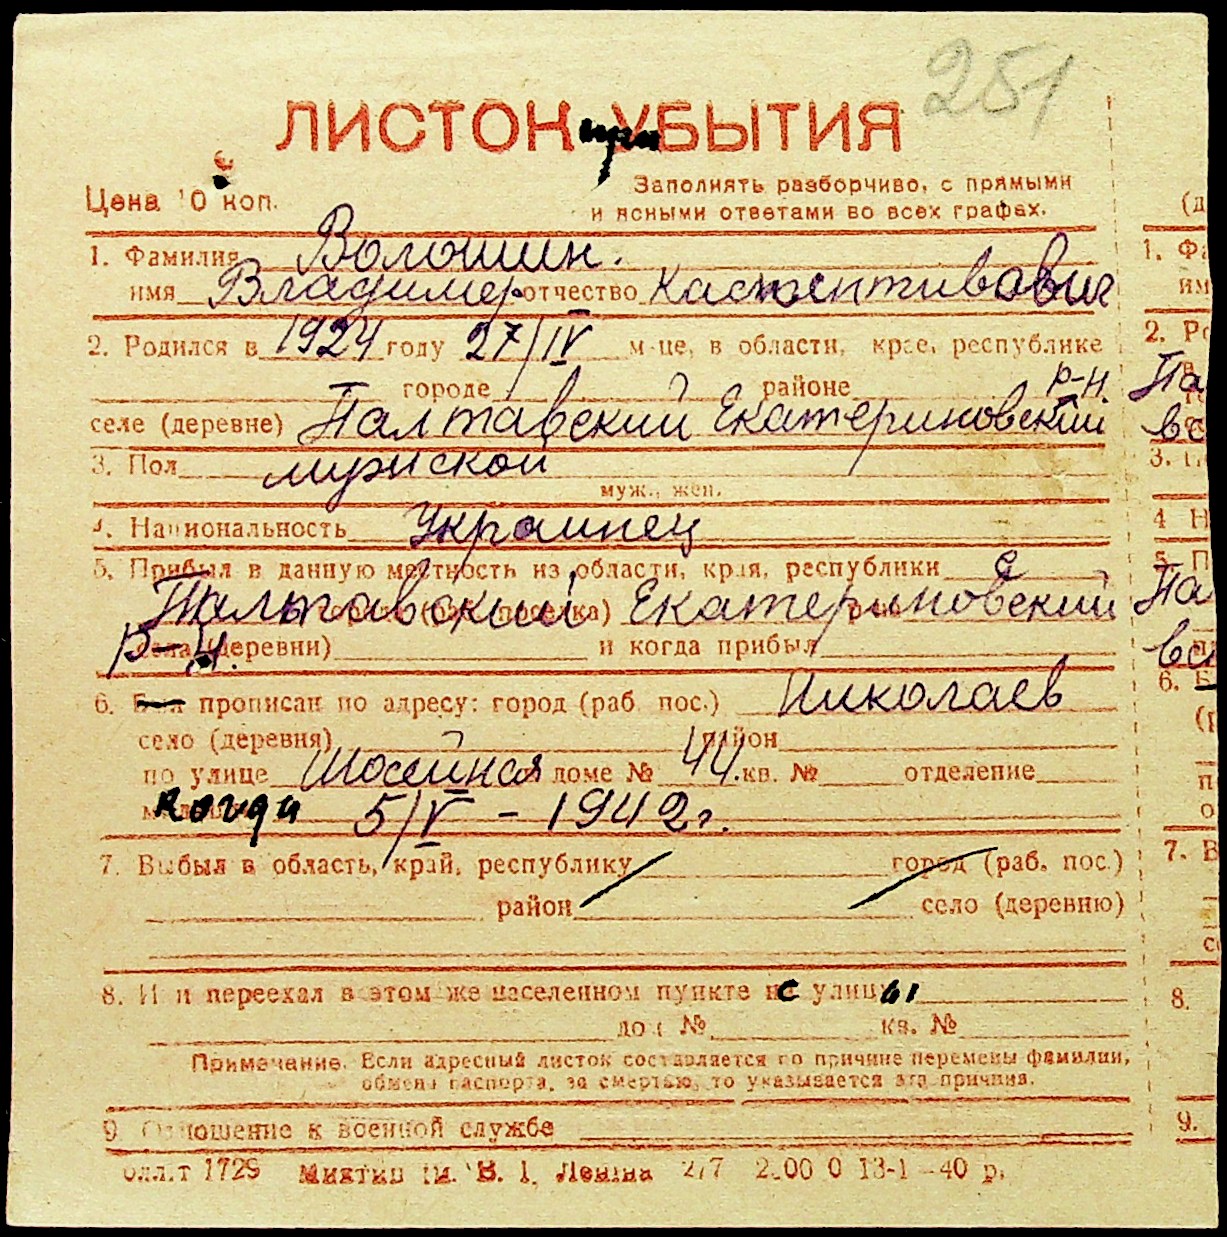 251
ЛИСТОК при УБЫТИЯ
Цена 10 коп.
Заполнять разборчиво, с прямыми
и ясными ответами во всех графах.
1. Фамилия Волошин.
имя Владимер отчество Кастентивович
2. Родился в 1924 году 27/IV м-це, в области, крае, республике
городе районе р-н.
селе (деревне) Палтавский Екатериновский
3. Пол мужской
муж., жен.
4. Национальность Украинец
5. Прибыл в данную местность из области, края, республики с
Палтавский (раб. поселка) Екатериновский
р-н. села (деревни) и когда прибыл
6. Был прописан по адресу: город (раб. пос.) Николаев
село (деревня) район
по улице Шосейная доме № 44. кв. № отделение
когда 5/V – 1942 г.
7. Выбыл в область, край, республику город (раб. пос.)
район село (деревню)
8. И и переехал в этом же населенном пункте с улицы
дом № кв. №
Примечание. Если адресный листок составляется по причине перемены фамилии,
обмена паспорта, за смертью, то указывается эта причина.
9. Отношение к военной службе
1729 им. В. І. Леніна 277 13-1–40 р.
(д
1. Фа
им
2. Ро
в
Па
вс
3. П
4 Н
5. П
Па
вс
6. Б
(р
п
о
7. В
с
8.
9.